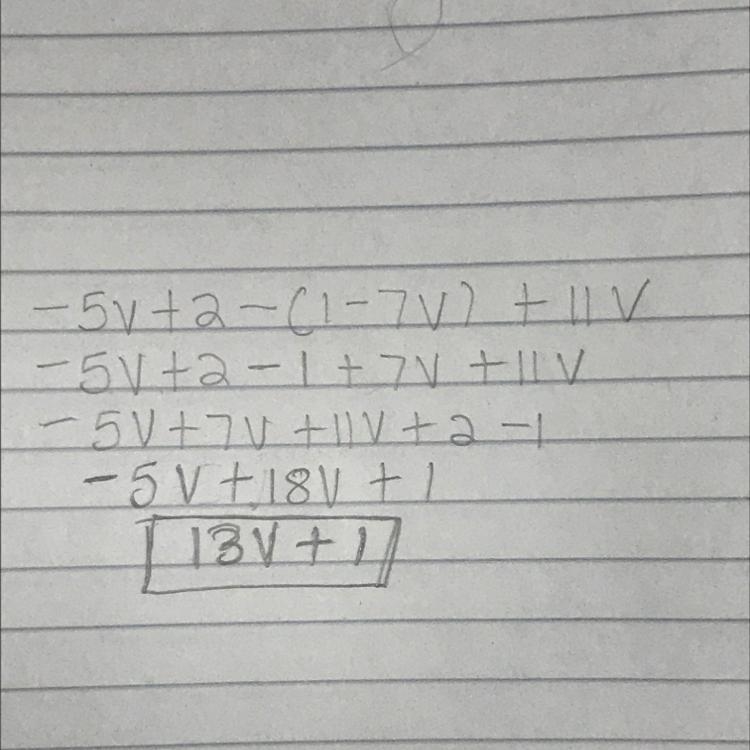 -5v+2-(1-7v) +11v
-5v+2-1+7v+11v
-5v+7v+11v+2-1
-5v+18v+1
13v+1